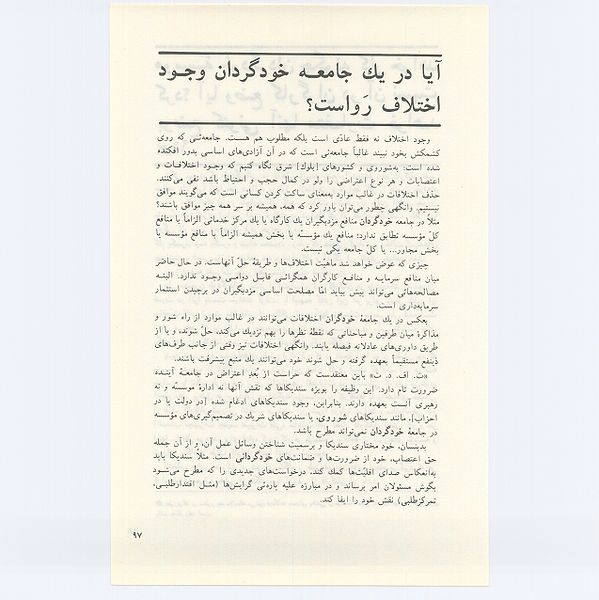 آیا در یك جامعـه خودگردان وجـود
اختلاف رَواست؟
وجود اختلاف نه فقط عادّی است بلکه مطلوب هم هست. جامعه‌ئی که روی
کشمکش بخود نبیند غالباً جامعه‌ئی است که در آن آزادی‌های اساسی بدور افکنده
شده است: به‌شوروی و کشورهای [بلوك] شرق نگاه کنیم که وجود اختلافـات و
اعتصابات و هر نوع اعتراضی را ولو در کمال حجب و احتیاط باشد نفی می‌کنند.
حذف اختلافات در غالب موارد به‌معنای ساکت کردن کسانی است که می‌گویند موافق
نیستیم. وانگهی چطور می‌توان باور کرد که همه، همیشه بر سر همه چیز موافق باشند؟
مثلاً در جامعه خودگردان منافع مزدبگیران یك کارگاه یا یك مرکز خدماتی الزاماً با منافع
کلّ مؤسسه تطابق ندارد؛ منافع یك مؤسسّه یا بخش همیشه الزاماً با منافع مؤسسه یا
بخش مجاور... یا کلّ جامعه یکی نیست.
چیزی که عوض خواهد شد ماهیّت اختلاف‌ها و طریقهٔ حلّ آنهاست. در حال حاضر
میان منافع سرمایـه و منافـع کارگران همگرائـی قابـل دوامـی وجـود ندارد. البتـه
مصالحه‌هائی می‌تواند پیش بیاید امّا مصلحت اساسی مزدبگیران در برچیدن استثمار
سرمایه‌داری است.
بعکس در یك جامعهٔ خودگردان اختلافات می‌توانند در غالب موارد از راه شور و
مذاکرهٔ میان طرفین و مباحثاتی که نقطهٔ نظرها را بهم نزدیك می‌کند، حلّ شوند، و یا از
طریق داوری‌های عادلانه فیصله یابند. وانگهی اختلافات نیز وقتی از جانب طرف‌های
ذینفع مستقیماً بعهده گرفته و حل شوند خود می‌توانند یك منبع پیشرفت باشند.
«ث. اف. د. ت» باین معتقدست که حراست از بُعدِ اعتراض در جامعـهٔ آینـده
ضرورت تام دارد. این وظیفه را بویژه سندیکاها که نقش آنها نه ادارهٔ موسسّه و نه
رهبری آنست بعهده دارند. بنابراین، وجود سندیکاهای ادغام شده [در دولت یا در
احزاب]، مانند سندیکاهای شوروی، یا سندیکاهای شریك در تصمیم‌گیری‌های مؤسسه
در جامعهٔ خودگردان نمی‌تواند مطرح باشد.
بدینسان، خود مختاری سندیکا و برسمیت شناختن وسائل عمل آن، و از آن جمله
حق اعتصاب، خود از ضرورت‌ها و ضمانت‌های خودگردانی است. مثلاً سندیکا باید
به‌انعکاس صدای اقلیّت‌ها کمك کند، درخواست‌های جدیدی را که مطرح می‌شـود
بگوش مسئولان امر برساند و در مبارزه علیه پاره‌ئی گرایش‌ها (مثـل اقتدارطلبی،
تمرکزطلبی) نقش خود را ایفا کند.
۹۷